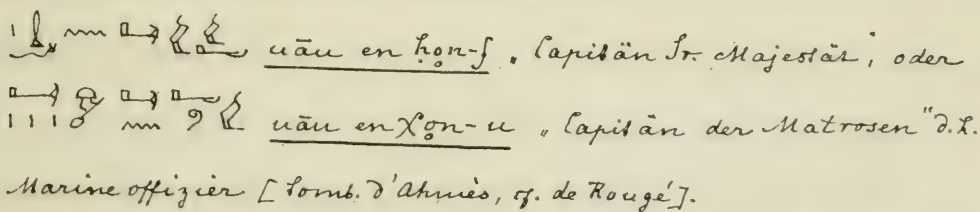 uāu en ḥon-f „Capitän Sr. Majestät", oder
uāu en χon-u „Capitän der Matrosen" d.h.
Marineoffizier [Tomb. d'Ahmès, cf. de Rougé].